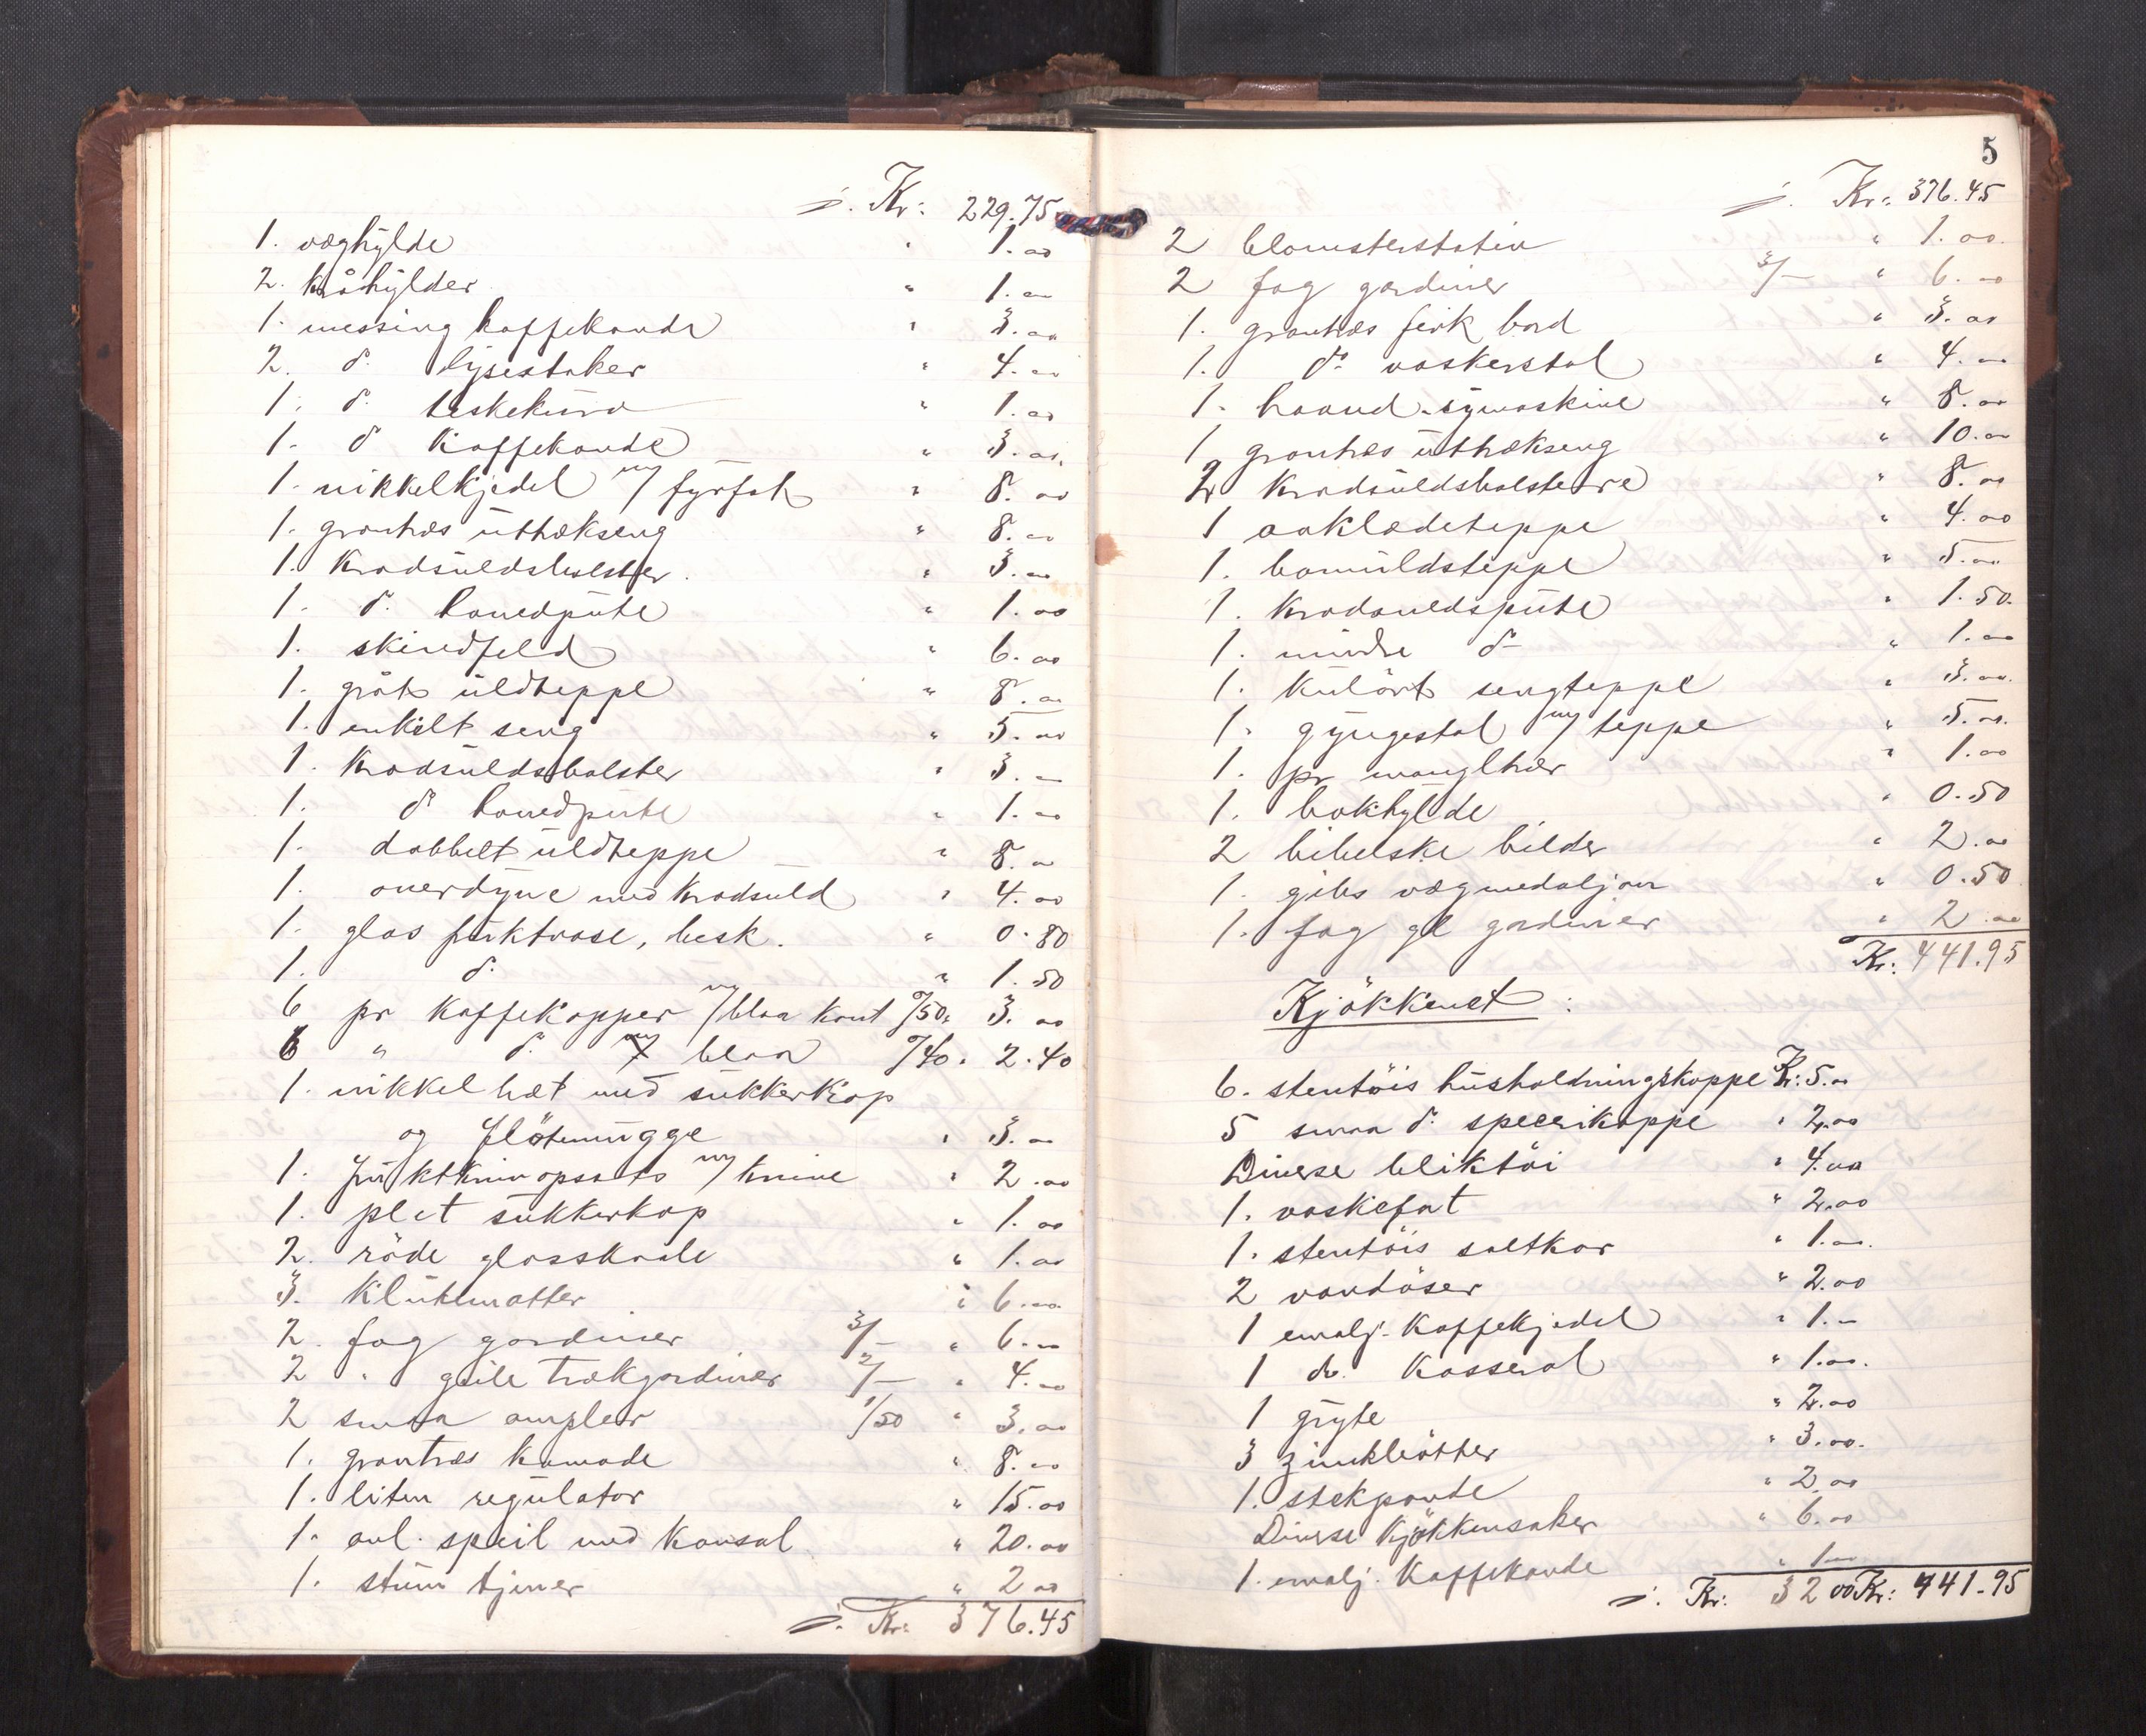 j. Kr: 229.75
1. væghylde " 1.00
2. kråhylder " 1.00
1. messing kaffekande " 3.00
2. do lysestaker " 4.00
1. do " 1.00
1. do kaffekande " 3.00
1. nikkelkjedel m/ fyrfat " 8.00
1. grantræs uttrækseng " 8.00
1. Kradsuldsbolster " 3.00
1. do hovedpute " 1.00
1. skindfeld " 6.00
1. gråt uldteppe " 8.00
1. enkelt seng " 5.00
1. Kradsuldsbolster " 3.00
1. do hovedpute " 1.00
1. dobbelt uldteppe " 8.00
1. overdyne med Kradsuld " 4.00
1. glas fruktvase, besk. " 0.80
1. do " 1.50
6 pr kaffekopper m/ blaa kant 0/50 " 3.00
6 " do m/ blaa 0/40 " 2.40
1. nikkel bræt med sukkerkop
og flötemugge " 3.00
1. fruktknivopsats m/ knive " 2.00
1. plet sukkerkop " 1.00
2. röde glasskaale " 1.00
3. Klutematter " 6.00
2. fag gardiner 3/- " 6.00
2 " gule trækgardiner 2/- " 4.00
2 smaa ampler 1/50 " 3.00
1. grantræs komode " 8.00
1. liten regulator " 15.00
1. avl. speil med konsol " 20.00
1. stum tjener " 2.00
j. Kr: 376.45
5
j. Kr: 376.45
2 blomsterstativ " 1.00
2 fag gardiner 3/- " 6.00
1. grantræs firk bord " 3.00
1. do vaskerstol " 4.00
1. haand-symaskine " 8.00
1 grantræs uttrækseng " 10.00
2 Kradsuldsbolstere " 8.00
1 aaklædeteppe " 4.00
1. bomuldsteppe " 5.00
1. Kradsuldspute " 1.50
1. mindre do " 1.00
1. Kulört sengteppe " 3.00
1. gyngestol m/ teppe " 5.00
1. pr mangltrær " 1.00
1. bokhylde " 0.50
2 bibelske bilder " 2.00
1. gibs vægmedaljon " 0.50
1. fag gl gardiner " 2.00
Kr: 441.95
Kjökkenet:
6. stentöis husholdningskoppe Kr: 5.00
5 smaa do specerikoppe " 2.00
Diverse bliktöi " 4.00
1. vaskefat " 2.00
1. stentöis saltkar " 1.00
2 vandöser " 2.00
1 emalj. Kaffekjedel " 1.-
1 do. Kasserol " 1.00
1 gryte " 2.00
3 zinkbötter " 3.00
1. stekpande " 2.00
Diverse Kjökkensaker " 6.00
1. emalj. Kaffekande " 1.00
j. Kr: 32 00 Kr: 441.95